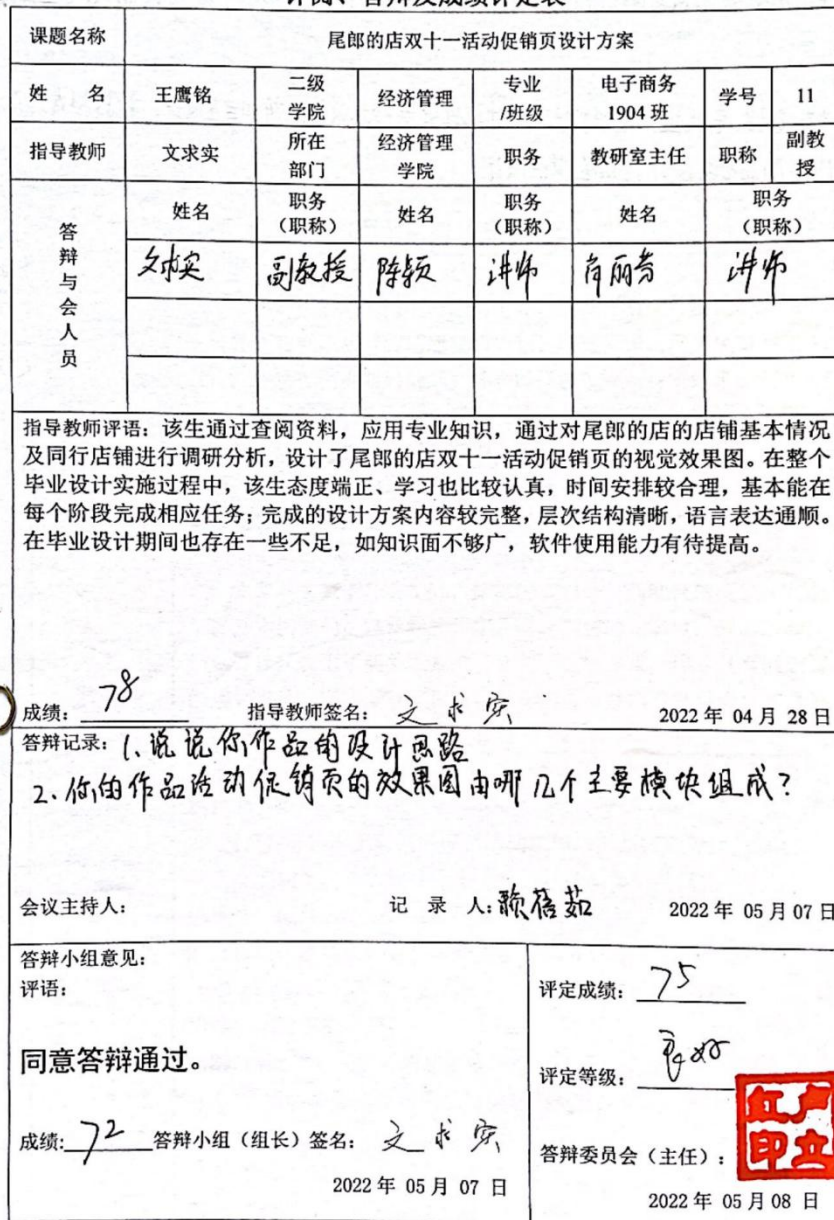 评阅、答辩及成绩评定表
课题名称 尾郎的店双十一活动促销页设计方案
姓 名 王鹰铭 二级学院 经济管理 专业/班级 电子商务1904班 学号 11
指导教师 文求实 所在部门 经济管理学院 职务 教研室主任 职称 副教授
答辩与会人员 姓名 职务（职称） 姓名 职务（职称） 姓名 职务（职称）
文求实 副教授 陈颖 讲师 讲师
指导教师评语：该生通过查阅资料，应用专业知识，通过对尾郎的店的店铺基本情况
及同行店铺进行调研分析，设计了尾郎的店双十一活动促销页的视觉效果图。在整个
毕业设计实施过程中，该生态度端正、学习也比较认真，时间安排较合理，基本能在
每个阶段完成相应任务；完成的设计方案内容较完整，层次结构清晰，语言表达通顺。
在毕业设计期间也存在一些不足，如知识面不够广，软件使用能力有待提高。
成绩： 78 指导教师签名： 文求实 2022年 04月 28日
答辩记录：1.说说你作品的设计思路
2.你的作品活动促销页的效果图由哪几个主要模块组成？
会议主持人： 记 录 人：赖蓓茹 2022年 05月 07日
答辩小组意见：
评语：
同意答辩通过。
成绩：72 答辩小组（组长）签名： 文求实
2022年 05月 07日
评定成绩： 75
评定等级： 良好
答辩委员会（主任）：
2022年 05月 08日